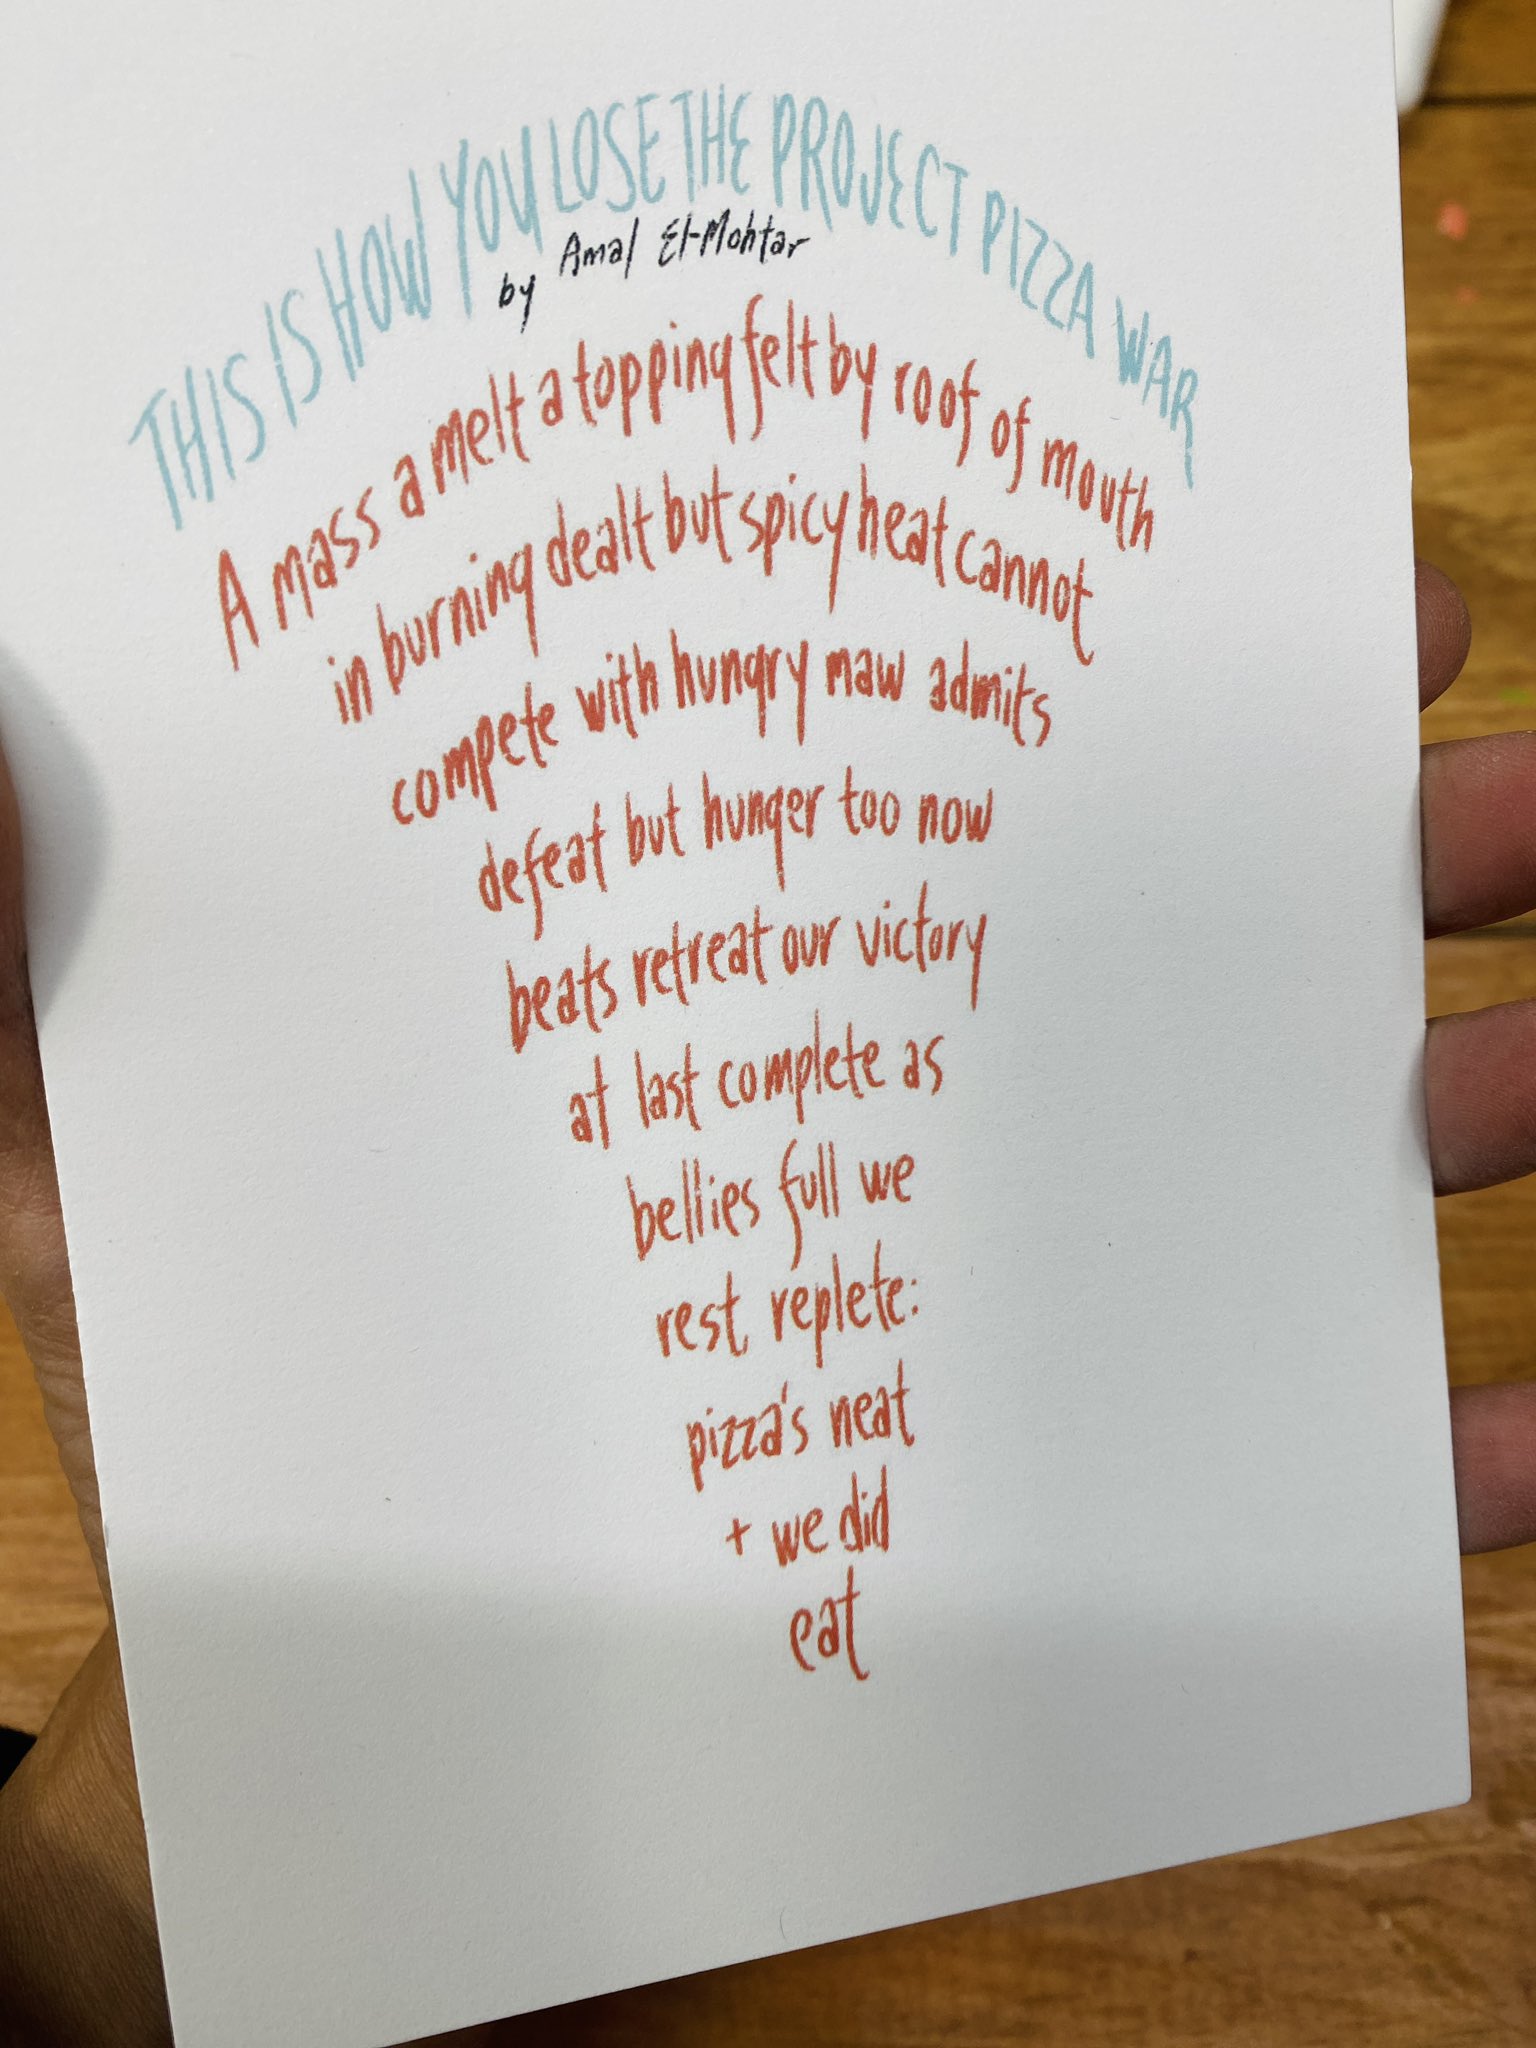 THIS IS HOW YOU LOSE THE PROJECT PIZZA WAR
by Amal El-Mohtar
A mass a melt a topping felt by roof of mouth
in burning dealt but spicy heat cannot
compete with hungry maw admits
defeat but hunger too now
beats retreat our victory
at last complete as
bellies full we
rest replete:
pizza's neat
+ we did
eat